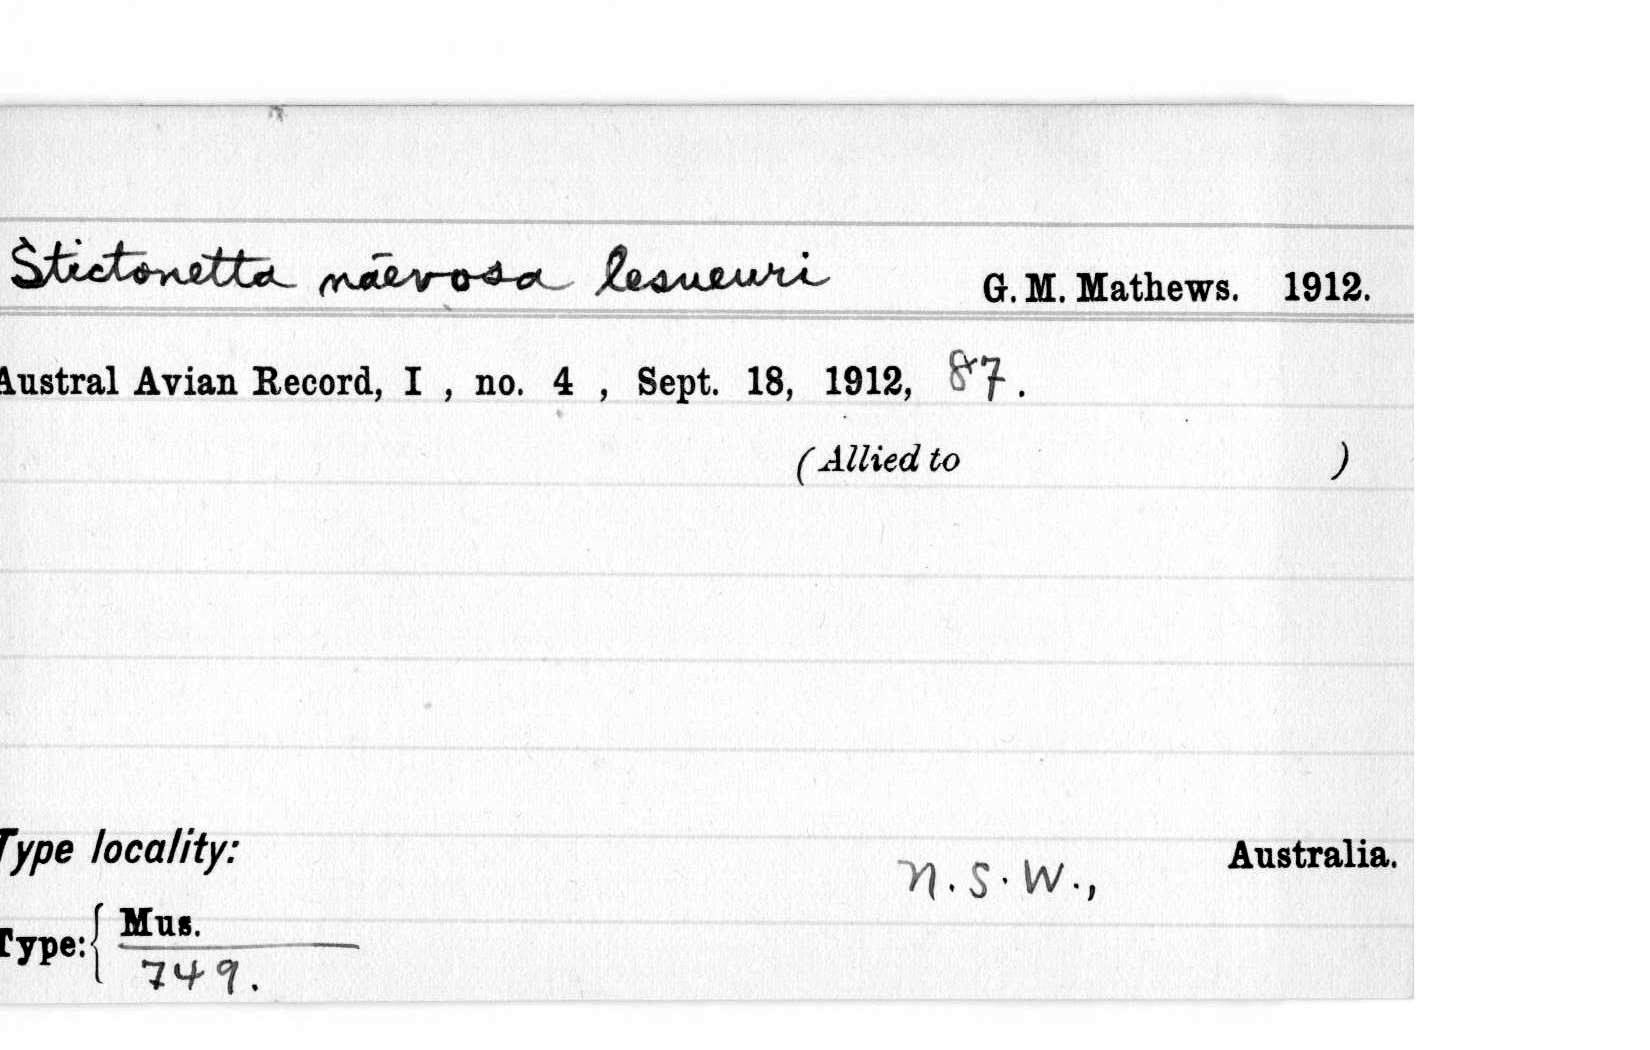 Stictonetta naevosa lesueuri G. M. Mathews. 1912.
Austral Avian Record, I , no. 4 , Sept. 18, 1912, 87.
(Allied to )
Type locality: N.S.W., Australia.
Type: { Mus.
749.